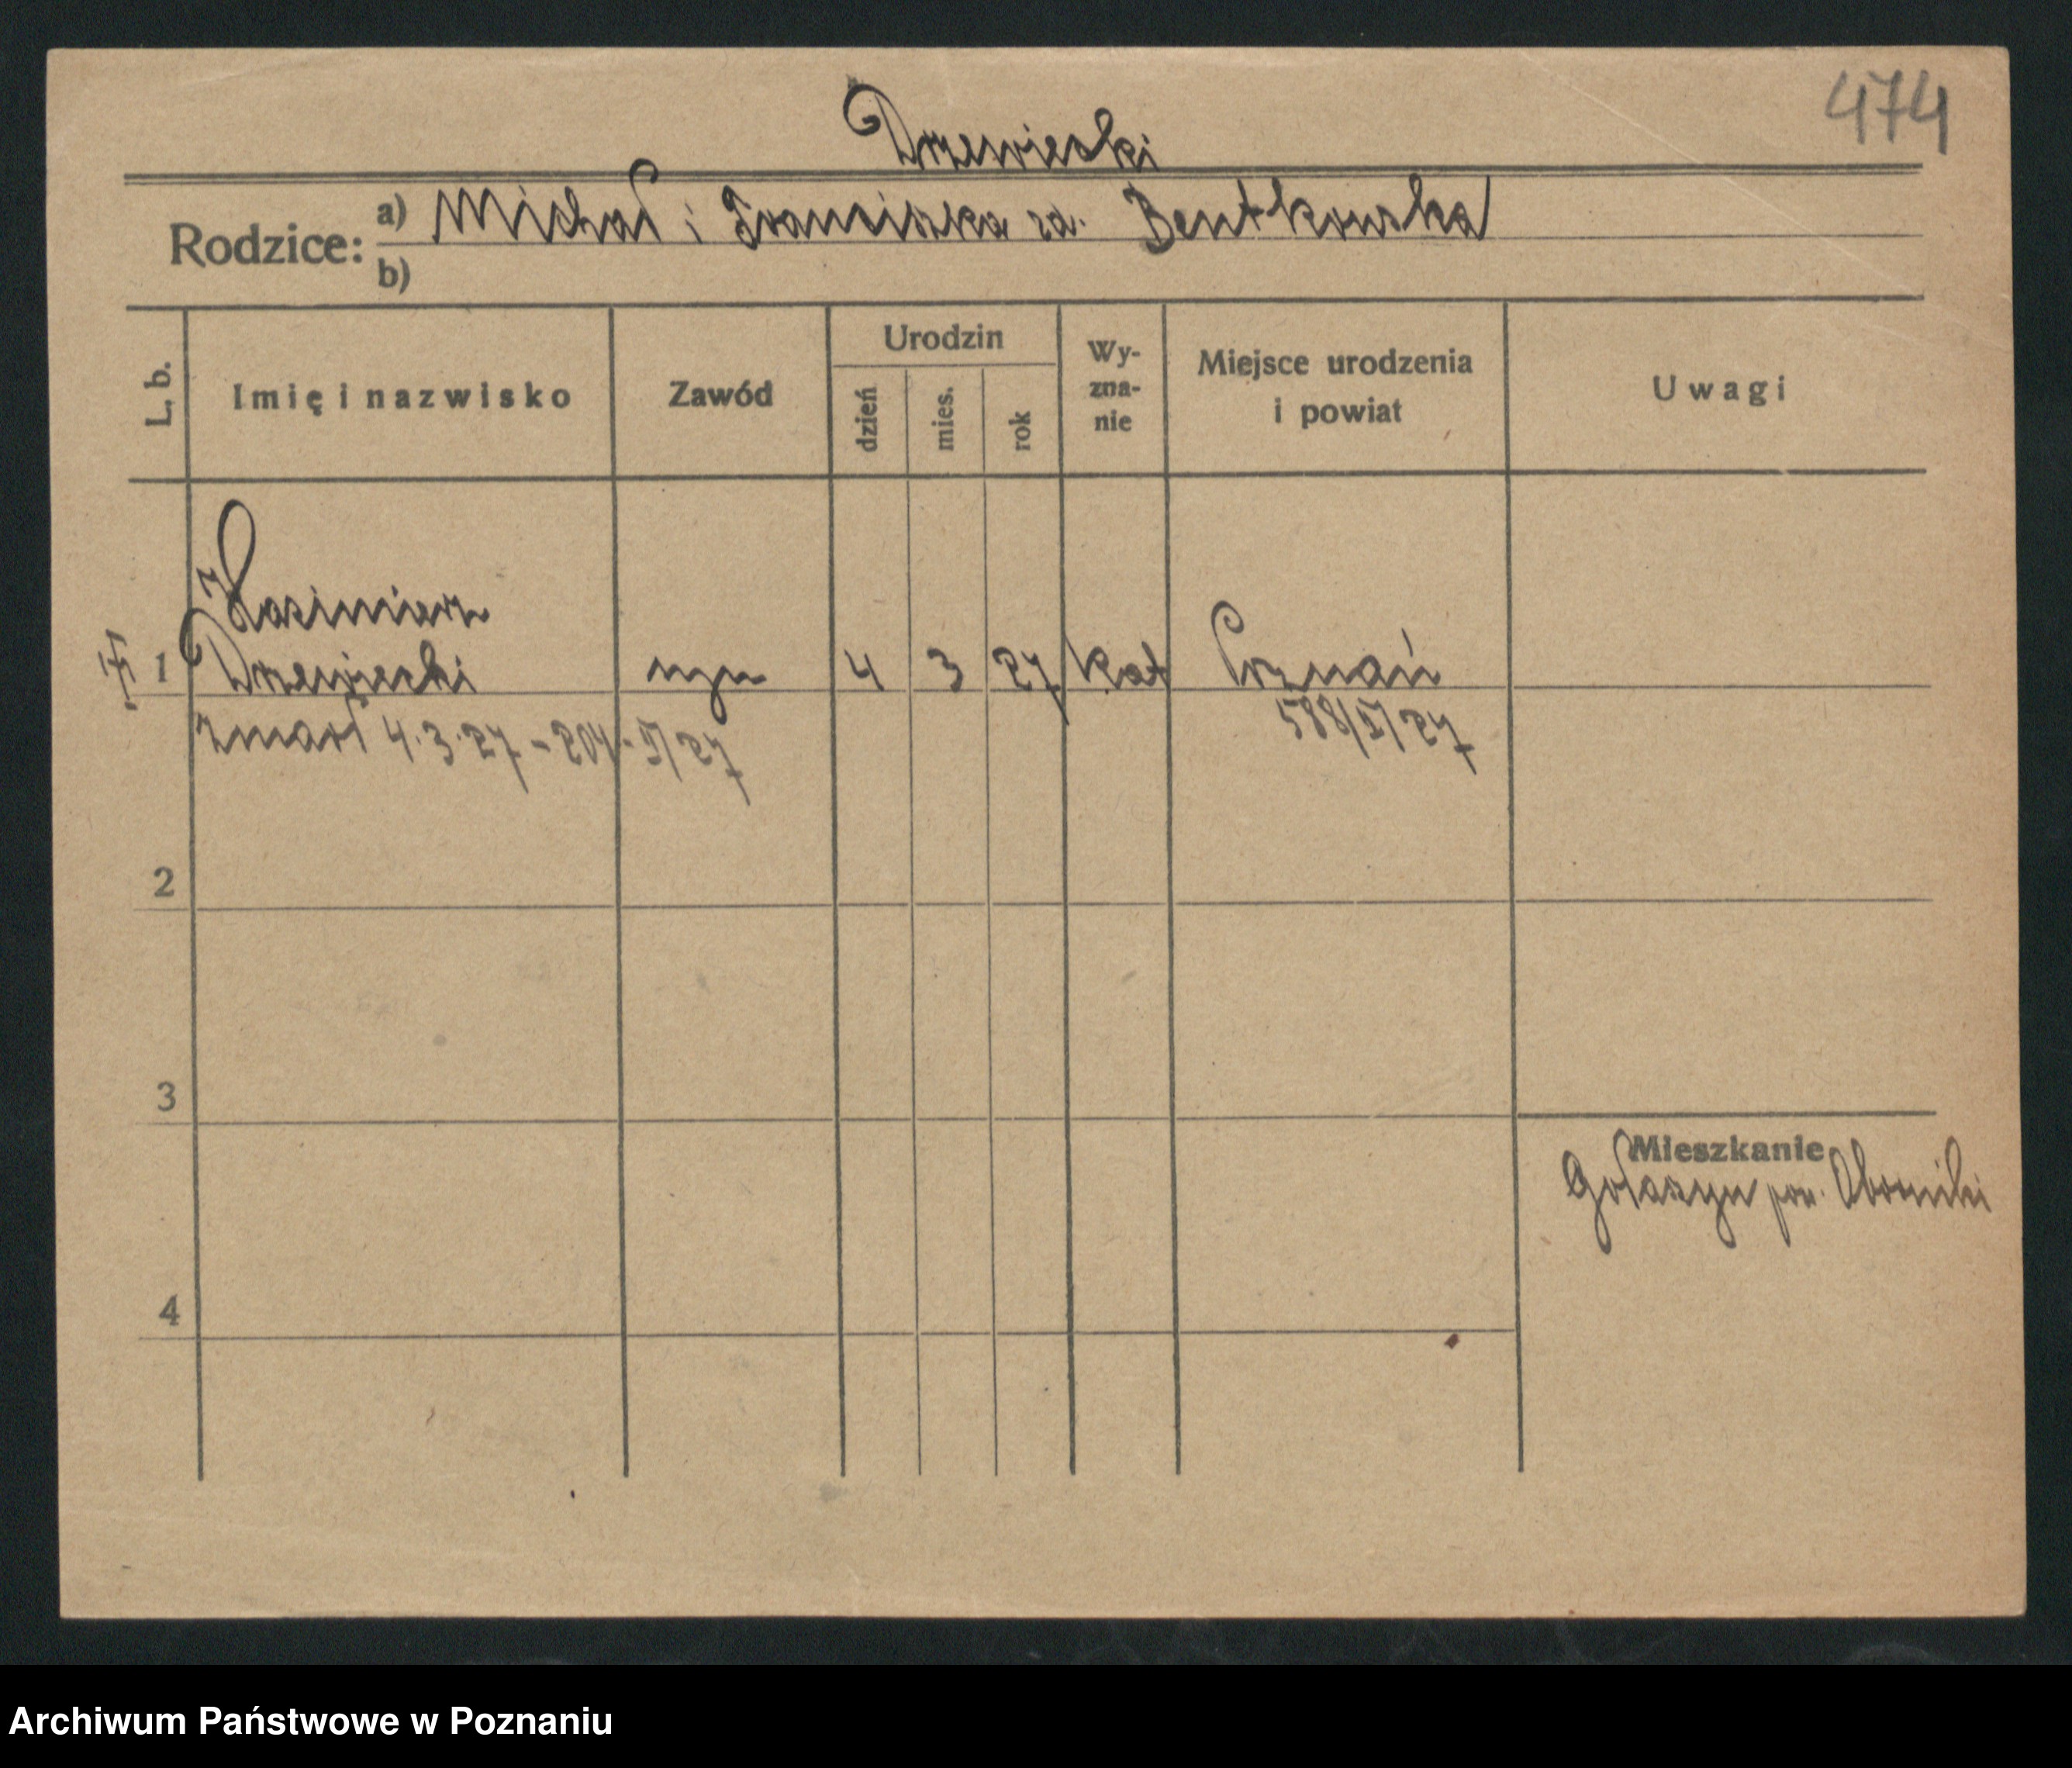 474
Drzewiecki
Rodzice: a) Michał i Franciszka zd. Bentkowska
b)
L. b.
Imię i nazwisko
Zawód
Urodzin
dzień
mies.
rok
Wy-
zna-
nie
Miejsce urodzenia
i powiat
Uwagi
Kazimierz
1 Drzewiecki syn 4 3 27 kat Poznań
zmarł 4.3.27 - 204 - V/27 588/V/27
2
3
Mieszkanie
Gołaszyn pow. Oborniki
4
Archiwum Państwowe w Poznaniu